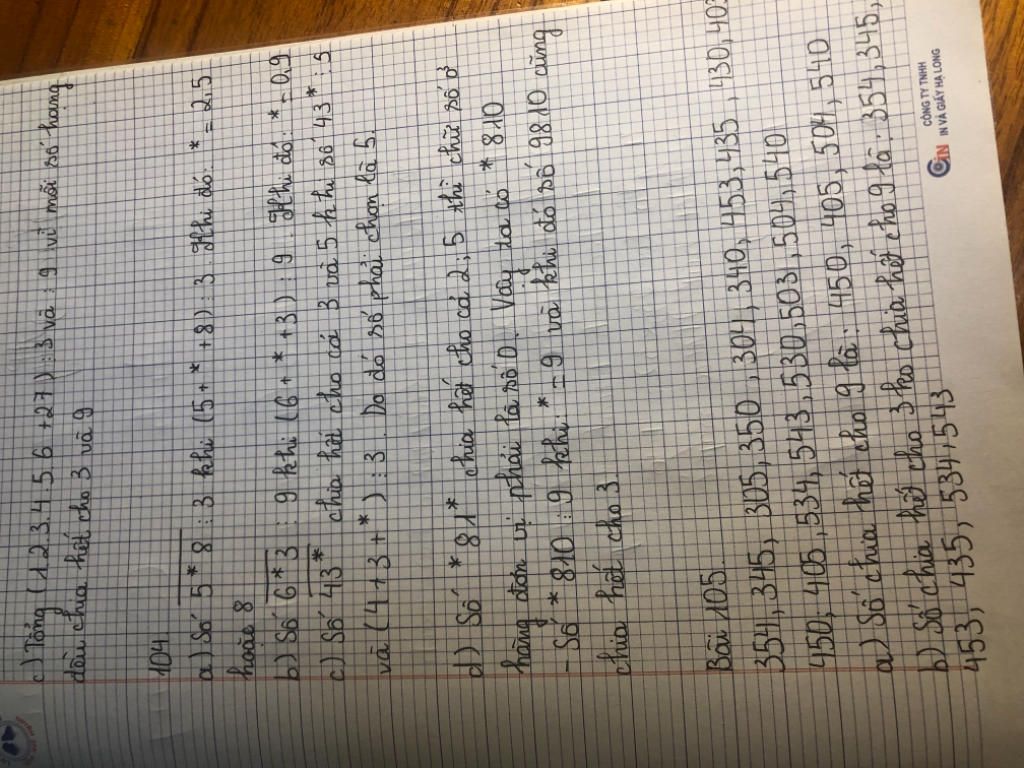 c) Tổng (1.2.3.4.5.6 + 27) : 3 và : 9 vì mỗi số hạng
đều chia hết cho 3 và 9
104
a) Số 5*8 : 3 khi (5 + * + 8) : 3. Khi đó: * = 2,5
hoặc 8
b) Số 6*3 : 9 khi (6 + * + 3) : 9. Khi đó: * = 0,9
c) Số 43* chia hết cho cả 3 và 5 khi số 43* : 5
và (4 + 3 + *) : 3. Do đó số phải chọn là 5.
d) Số *81* chia hết cho cả 2; 5 thì chữ số ở
hàng đơn vị phải là số 0. Vậy ta có *810
- Số *810 : 9 khi: * = 9 và khi đó số 9810 cũng
chia hết cho 3.
Bài 105.
354, 345, 305, 350, 304, 340, 453, 435, 430, 403
450, 405, 534, 543, 530, 503, 504, 540
a) Số chia hết cho 9 là: 450, 405, 504, 540
b) Số chia hết cho 3 ko chia hết cho 9 là: 354, 345,
453, 435, 534, 543
CÔNG TY TNHH
IN VÀ GIẤY HẠ LONG